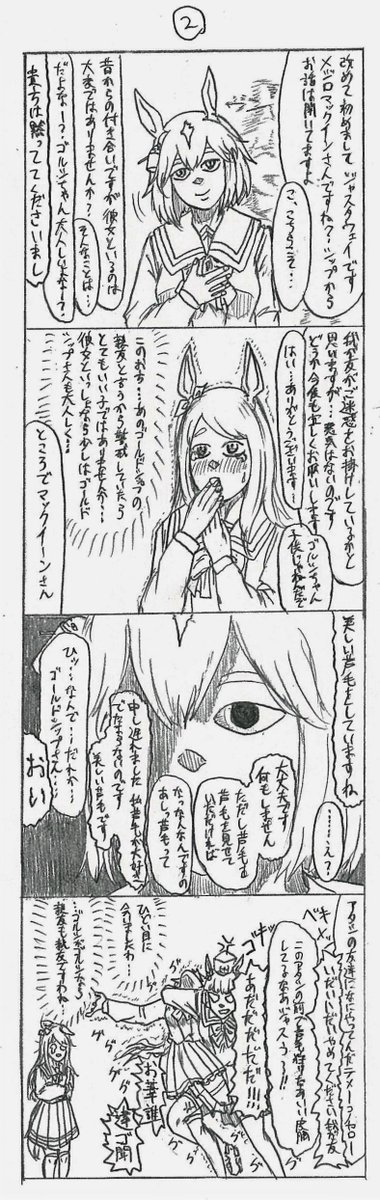 2
改めて初めましてジャスタウェイです
メジロマックイーンさんですね?シップから
お話は聞いてますよ
こ、こちらこそ…
昔からの付き合いですが彼女といるのは
大変ではありませんか?
そんなことは…
だよなー?ゴルシちゃん大人しいよなー?
貴方は黙っててくださいまし
我が友がご迷惑をお掛けしているかと
思いますが…悪気はないのです
どうか今後も宜しくお願いします
ゴルシちゃん
子供じゃねえんだぞ
はい…ありがとうございます…
このお方…あのゴールドシップの
親友と言うから警戒していたら
とてもいい子ではありませんか…
彼女といっしょなら少しはゴールド
シップさんも大人しく…
ところでマックイーンさん
美しい芦毛をしていますね
……え?
大丈夫です
何もしません
ただし芦毛を見せて
いただければ
なっ…なんなんですの
あし…芦毛って
申し遅れました私芦毛が大好き
でたまらないのです
美しい芦毛です
ヒッ…なんで…だれか…
ゴールドシップさん…
おい
アタシの友達になにやってんだテメーコノヤロー
ベキ
メッ
いだいいだいやめてください我が友
このアタシの前で
ゴキッ
あだだだだだだ!!!
ひどい目に
会いましたわ…
…ゴールドシップなら
親友も親友ですわね
グ
グ
グ
グ